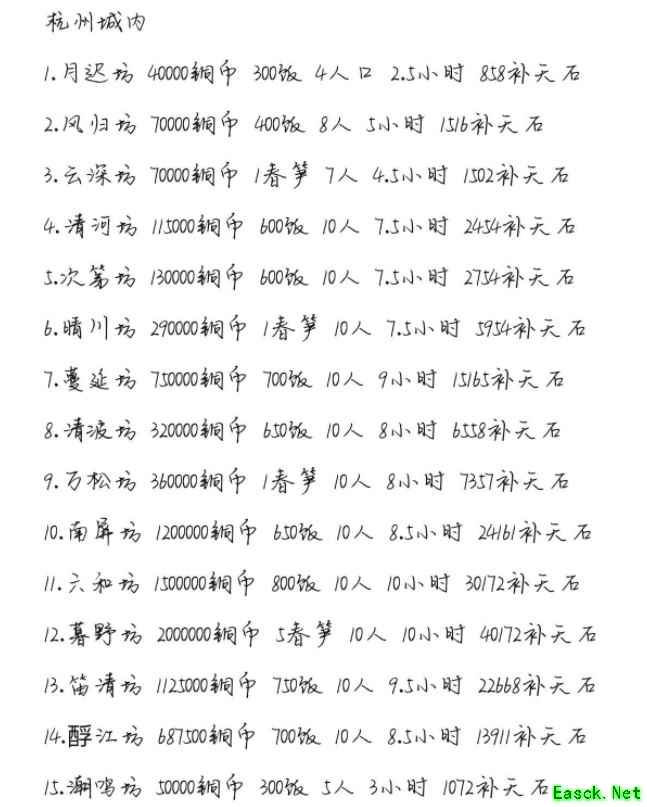 杭州城内
1.月迟坊 40000铜币 300饭 4人口 2.5小时 858补天石
2.风归坊 70000铜币 400饭 8人 5小时 1516补天石
3.云深坊 70000铜币 1春笋 7人 4.5小时 1502补天石
4.清河坊 115000铜币 600饭 10人 7.5小时 2454补天石
5.次第坊 130000铜币 600饭 10人 7.5小时 2754补天石
6.晴川坊 290000铜币 1春笋 10人 7.5小时 5954补天石
7.蔓延坊 750000铜币 700饭 10人 9小时 15165补天石
8.清波坊 320000铜币 650饭 10人 8小时 6558补天石
9.万松坊 360000铜币 1春笋 10人 8小时 7357补天石
10.南屏坊 1200000铜币 650饭 10人 8.5小时 24161补天石
11.六和坊 1500000铜币 800饭 10人 10小时 30172补天石
12.暮野坊 2000000铜币 5春笋 10人 10小时 40172补天石
13.笛清坊 1125000铜币 750饭 10人 9.5小时 22668补天石
14.醇江坊 687500铜币 700饭 10人 8.5小时 13911补天石
15.潮鸣坊 50000铜币 300饭 5人 3小时 1072补天石
Easck.Net